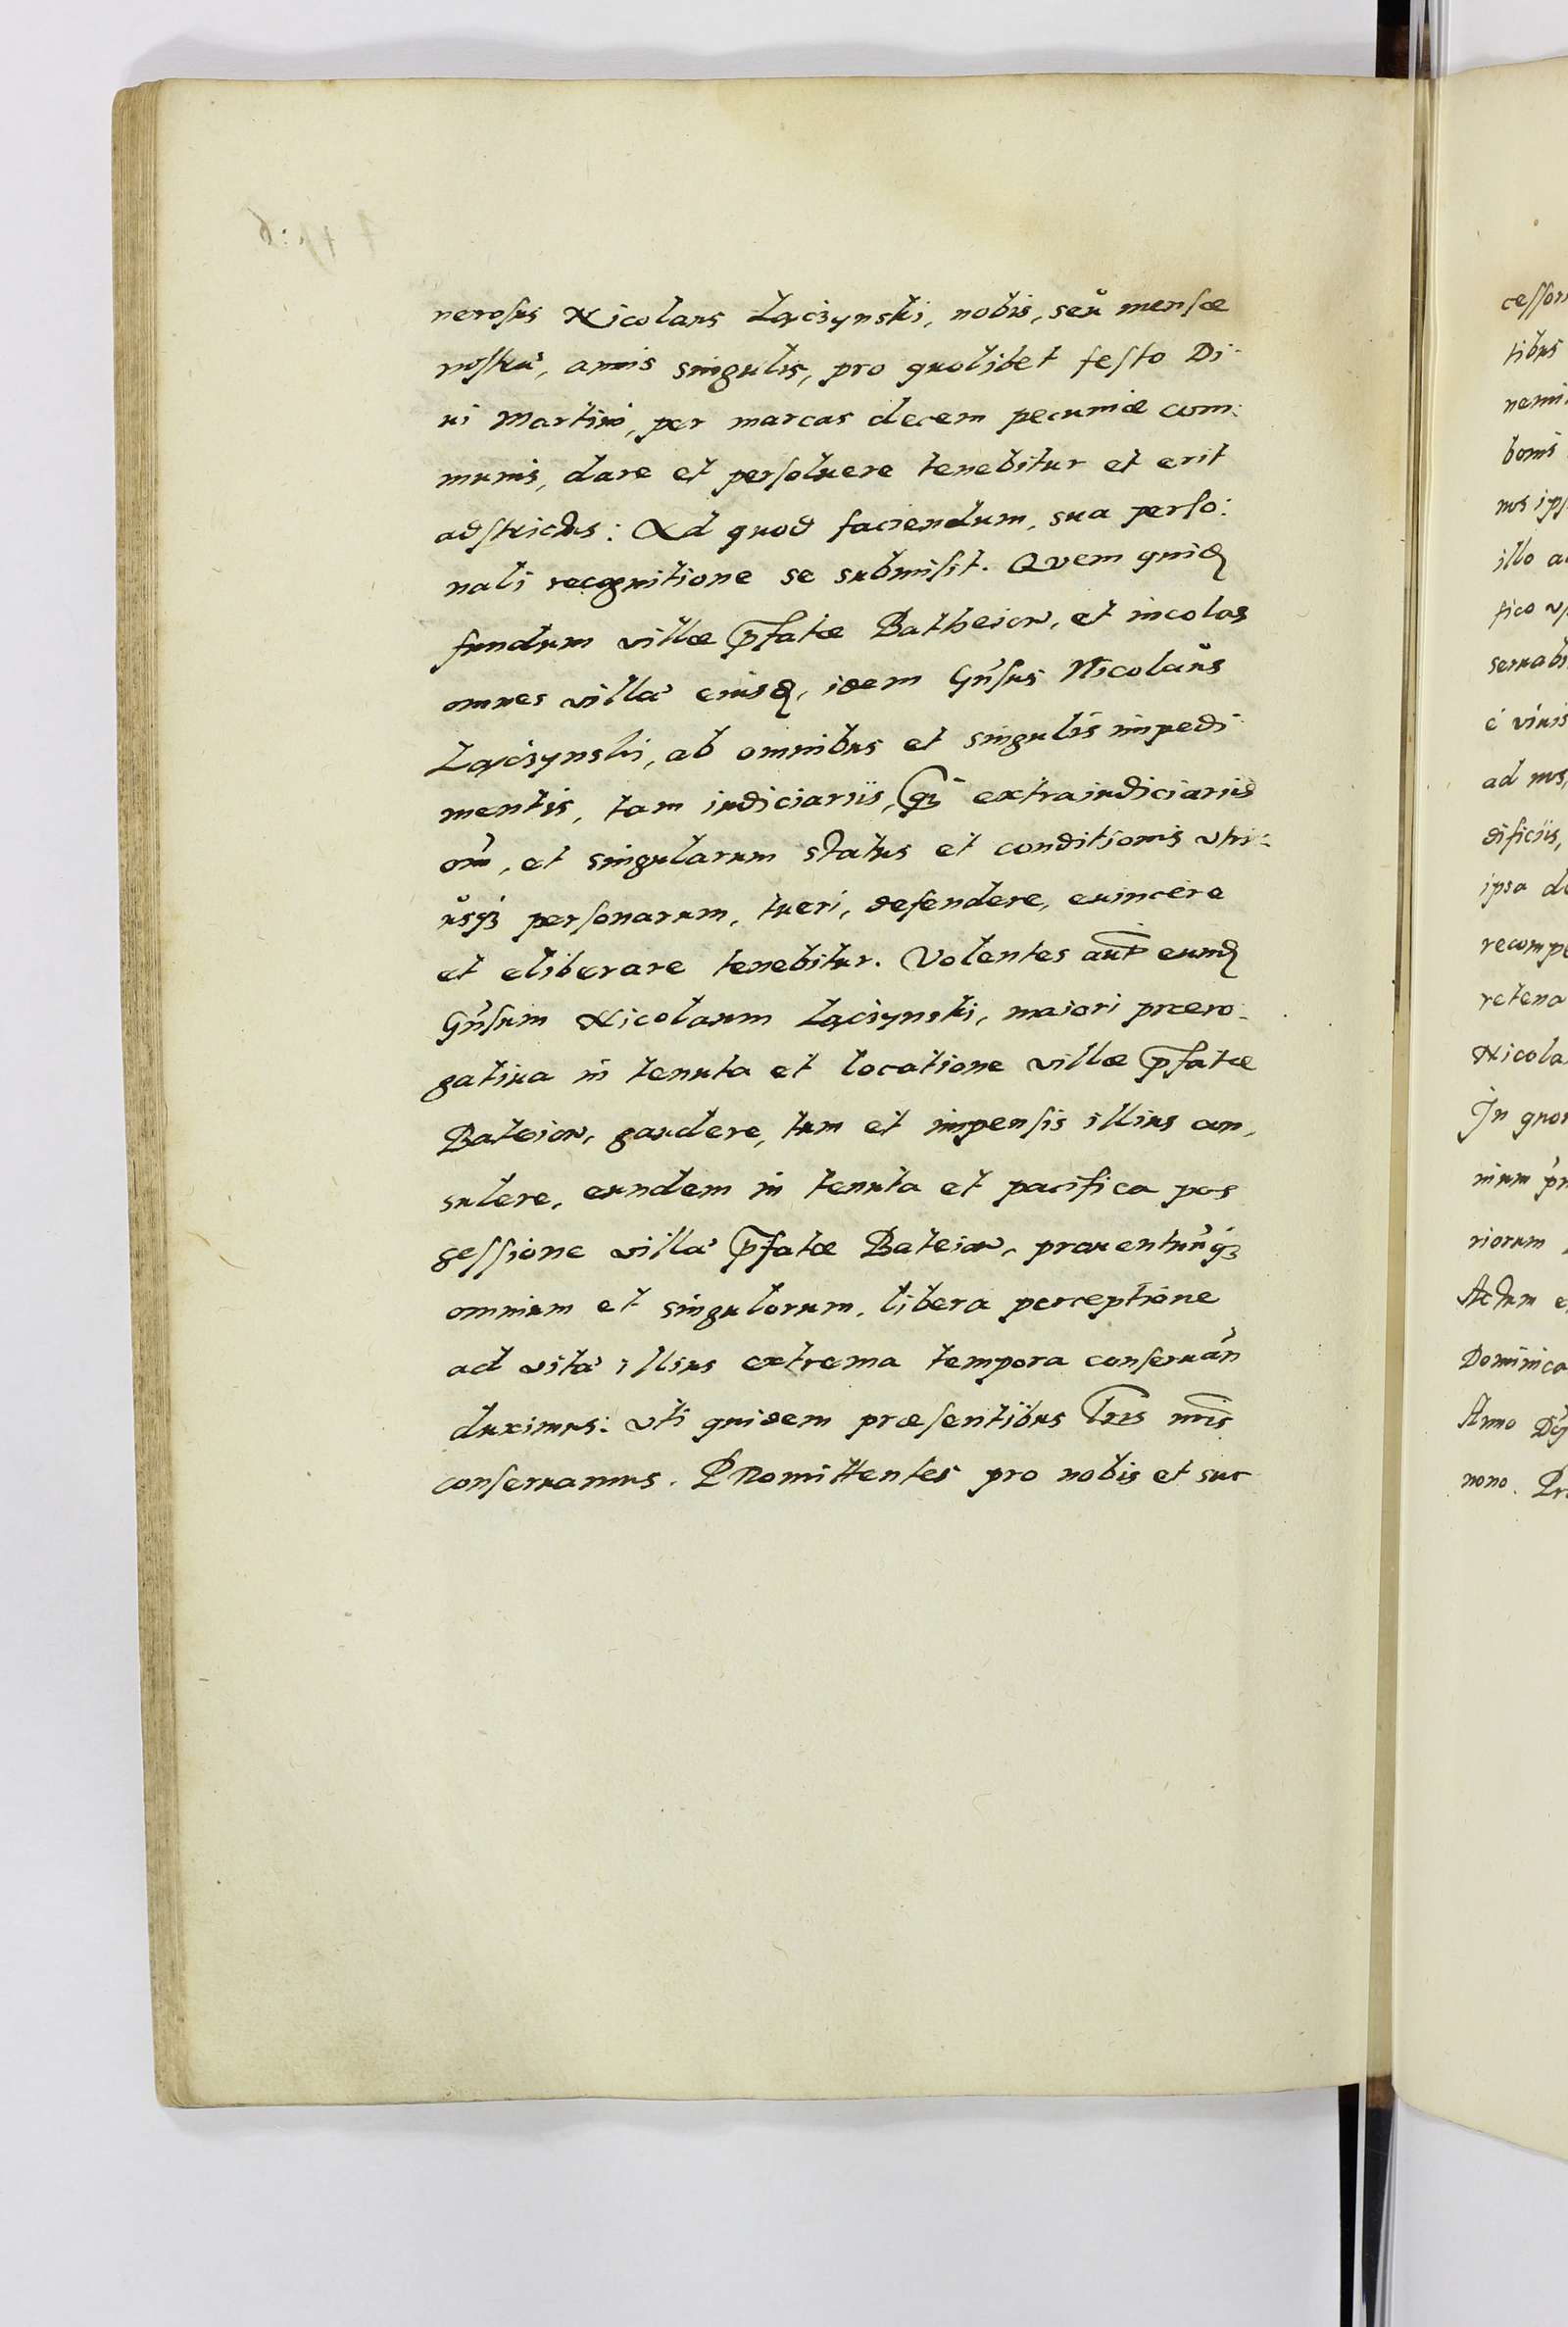 nerosus Nicolaus Łączynski, nobis, seu mensæ
nostræ, annis singulis, pro quolibet festo Di-
ui Martini, per marcas decem pecuniæ com:
munis, dare et persoluere tenebitur et erit
adstrictus: Ad quod faciendum, sua perso:
nali recognitione se submisit. Quem quidẽ
fundum villæ p̃fatæ Batheiow, et incolas
omnes villæ eiusdẽ, idem Gñsus Nicolaus
Łączynski, ab omnibus et singulis impedi
mentis, tam iudiciariis, q̃ extraiudiciariis
oĩm, et singularum status et conditionis vtri:
usq₃ personarum, tueri, defendere, euincere
et eliberare tenebitur. Volentes aũt eundẽ
Gñsum Nicolaum Łączynski, maiori præro-
gatiua in tenuta et locatione villæ p̃fatæ
Bateiow, gaudere, tum et impensis illius con,
sulere, eundem in tenuta et pacifica pos
sessione villæ p̃fatæ Bateiow, prouentuũq₃
omnium et singulorum, libera perceptione
ad vitæ illius extrema tempora conseruãn
duximus: vti quidem præsentibus l̃ris nr̃is
conseruamus. PRomittentes pro nobis et suc
cessor
tibus
nemi
bonis
nos ips
illo a
fico
seruabi
è viuis
ad nos,
dificiis,
ipsa de
recompe
retena
Nicola
In quor
nium
riorum
Actum e
Dominica
Anno
nono. Pr